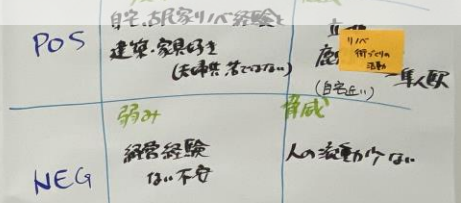 POS
自宅、古民家リノベ経験と
建築・家具好き
(夫婦共 苦ではない)
リノベ
街づくりの
活動
隼人駅
(自宅近い)
弱み
脅威
NEG
経営経験
ない不安
人の流動少ない